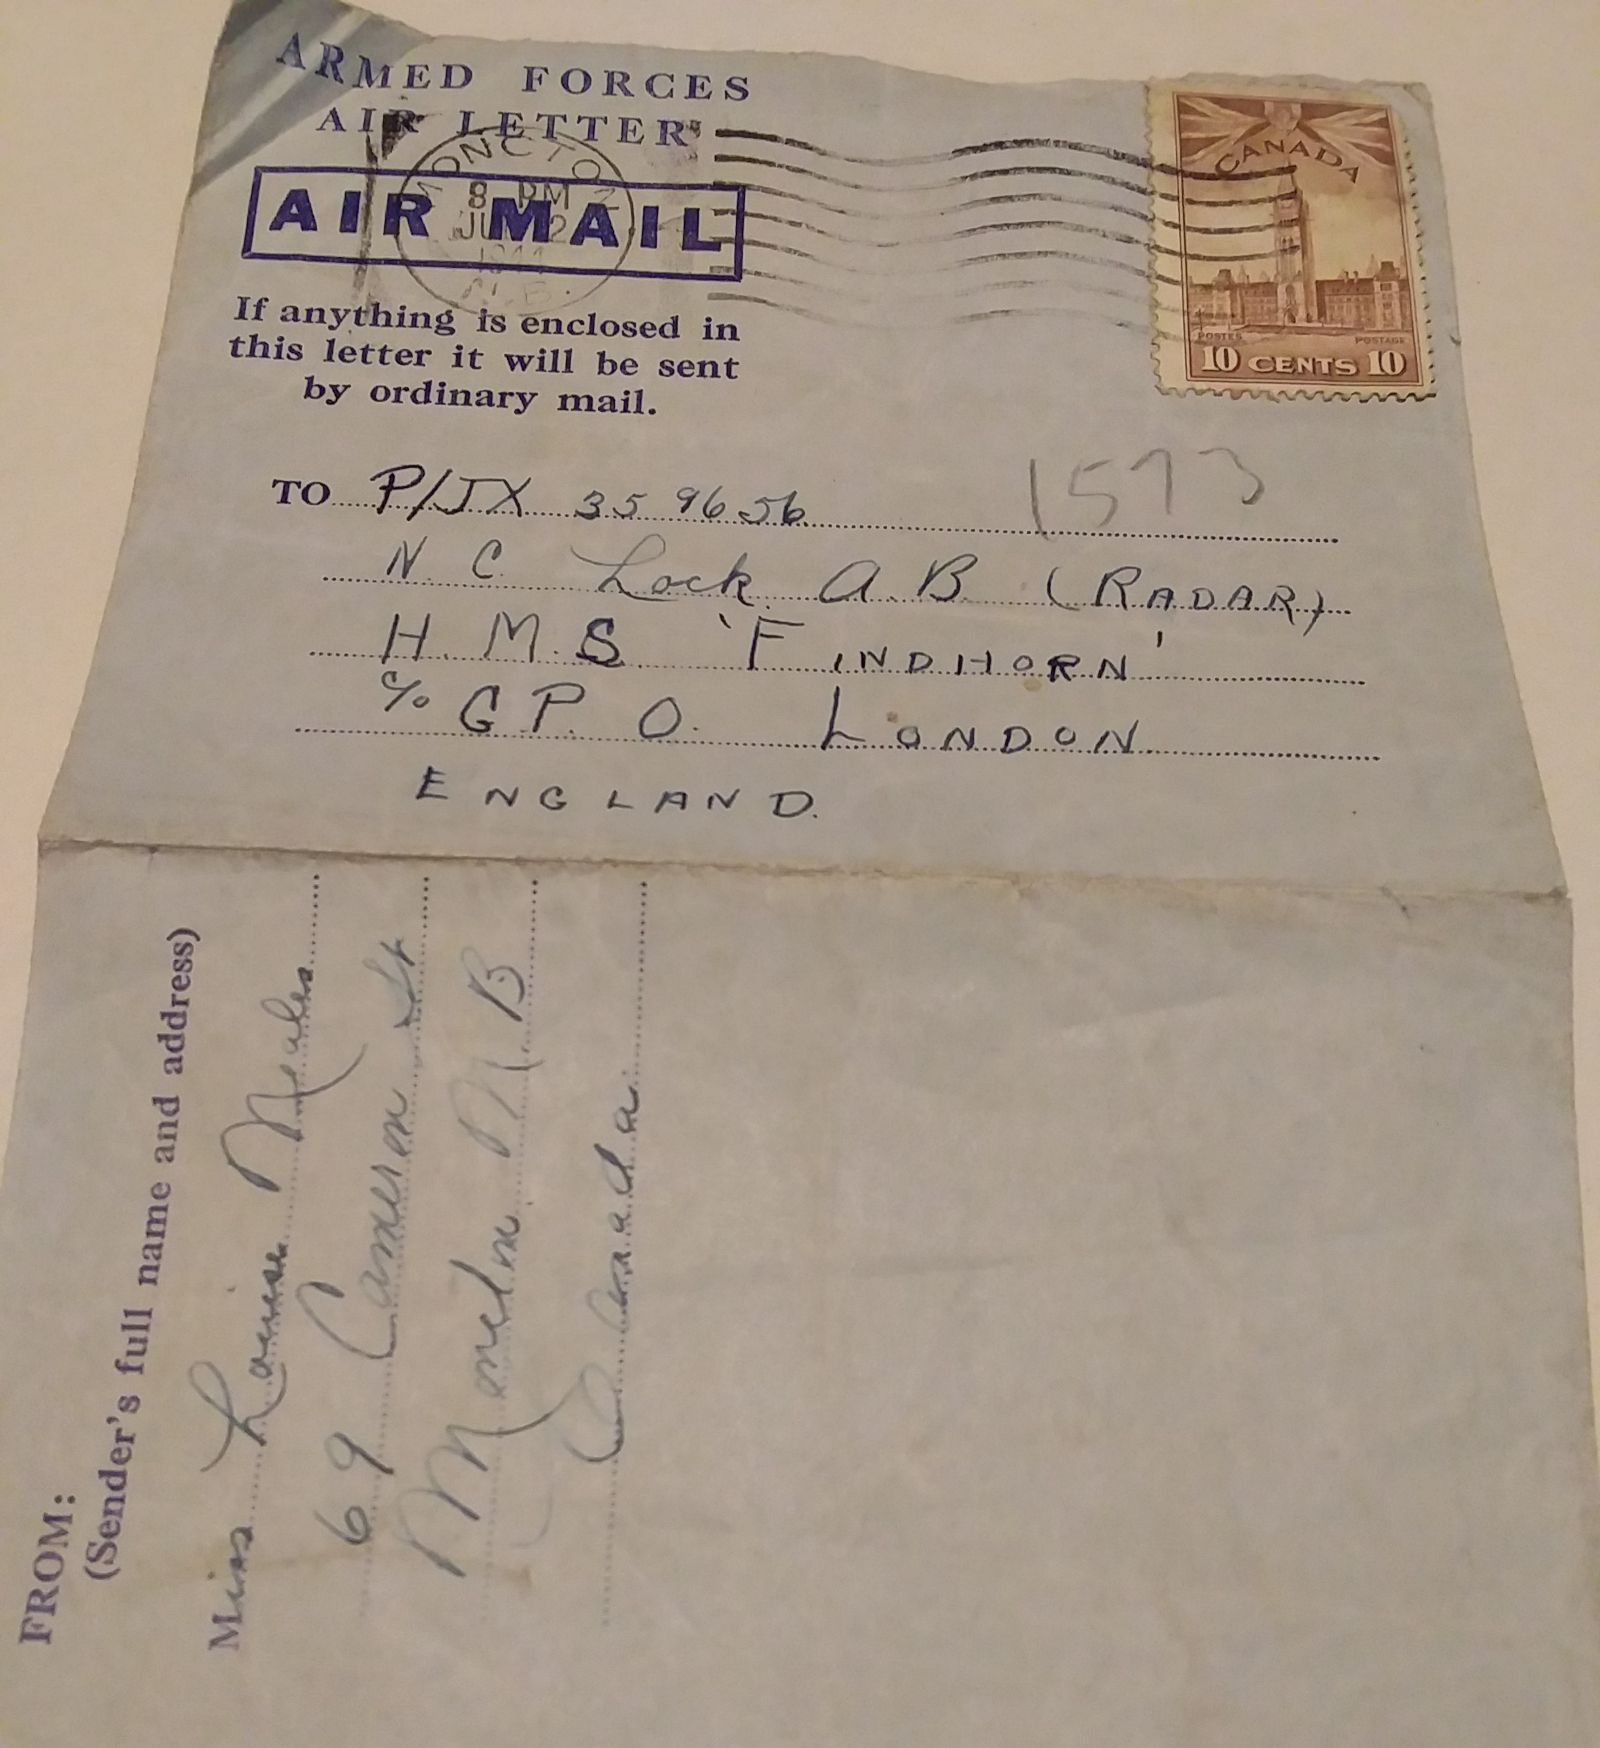 ARMED FORCES
AIR LETTER
AIR MAIL
MONCTON
8 PM
2
1944
N.B.
If anything is enclosed in
this letter it will be sent
by ordinary mail.
CANADA
POSTES POSTAGE
10 CENTS 10
1573
TO P/JX 359656
N. C. Lock A.B. (RADAR)
H.M.S. 'FINDHORN'
c/o G.P.O. LONDON
ENGLAND.
FROM:
(Sender's full name and address)
Miss Louise
69 Cameron St
Moncton N.B
Canada